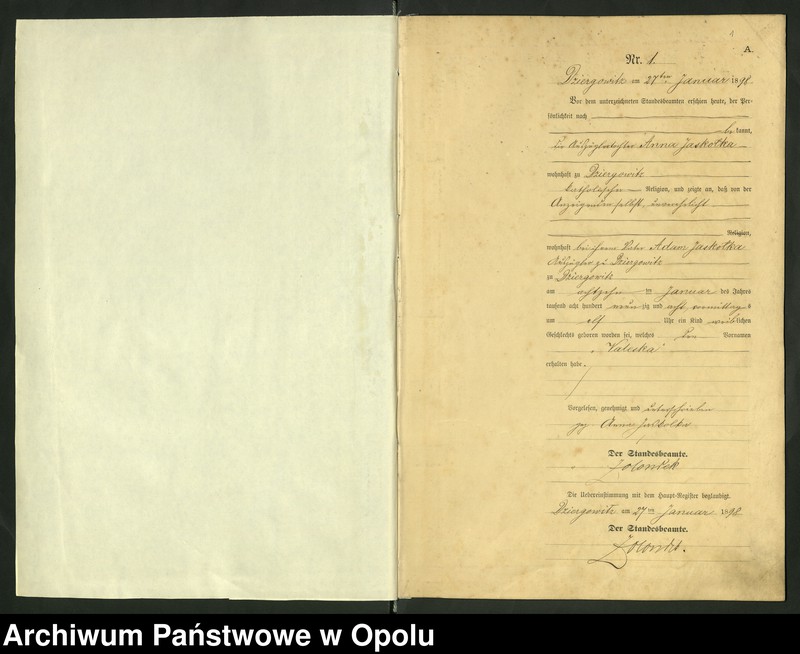 A.
Nr. 1.
Dziergowitz am 27ten Januar 1898
Vor dem unterzeichneten Standesbeamten erschien heute, der Per-
sönlichkeit nach
be kannt,
die Auszüglertochter Anna Jaskolka
wohnhaft zu Dziergowitz
katholischer Religion, und zeigte an, daß von der
Anzeigenden selbst, unverehelicht
Religion,
wohnhaft bei ihrem Vater Adam Jaskolka
Auszügler zu Dziergowitz
zu Dziergowitz
am achtzehn ten Januar des Jahres
tausend acht hundert neun zig und acht, vormittag s
um elf Uhr ein Kind weib lichen
Geschlechts geboren worden sei, welches den Vornamen
„Valeska“
erhalten habe.
Vorgelesen, genehmigt und unterschrieben
gez. Anna Jaskolka
Der Standesbeamte.
Die Uebereinstimmung mit dem Haupt-Register beglaubigt.
Dziergowitz am 27ten Januar 1898
Der Standesbeamte.
Archiwum Państwowe w Opolu